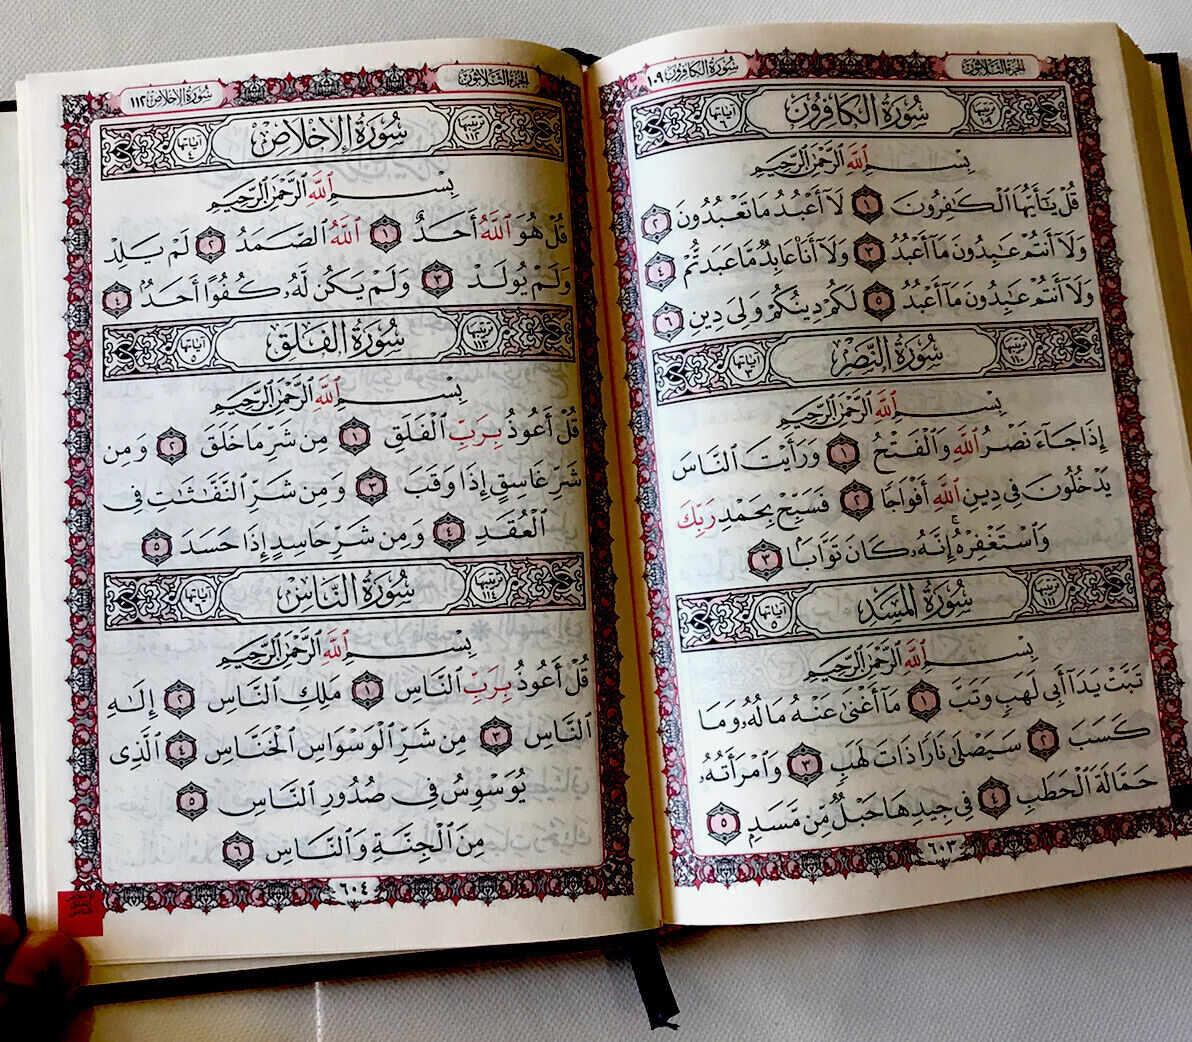 سُورَةُ الكافِرُونَ ١٠٩
الجزءُ الثَّلاثُونَ
ترتيبها ١٠٩
سُورَةُ الكَافِرُونَ
آياتها ٦
بِسْمِ ٱللَّهِ ٱلرَّحْمَٰنِ ٱلرَّحِيمِ
قُلْ يَٰٓأَيُّهَا ٱلْكَٰفِرُونَ ١ لَآ أَعْبُدُ مَا تَعْبُدُونَ ٢
وَلَآ أَنتُمْ عَٰبِدُونَ مَآ أَعْبُدُ ٣ وَلَآ أَنَا۠ عَابِدٌ مَّا عَبَدتُّمْ ٤
وَلَآ أَنتُمْ عَٰبِدُونَ مَآ أَعْبُدُ ٥ لَكُمْ دِينُكُمْ وَلِىَ دِينِ ٦
سُورَةُ النَّصْرِ
بِسْمِ ٱللَّهِ ٱلرَّحْمَٰنِ ٱلرَّحِيمِ
إِذَا جَآءَ نَصْرُ ٱللَّهِ وَٱلْفَتْحُ ١ وَرَأَيْتَ ٱلنَّاسَ
يَدْخُلُونَ فِى دِينِ ٱللَّهِ أَفْوَاجًا ٢ فَسَبِّحْ بِحَمْدِ رَبِّكَ
وَٱسْتَغْفِرْهُ ۚ إِنَّهُۥ كَانَ تَوَّابًۢا ٣
ترتيبها ١١١
سُورَةُ المَسَدِ
آياتها ٥
بِسْمِ ٱللَّهِ ٱلرَّحْمَٰنِ ٱلرَّحِيمِ
تَبَّتْ يَدَآ أَبِى لَهَبٍ وَتَبَّ ١ مَآ أَغْنَىٰ عَنْهُ مَالُهُۥ وَمَا
كَسَبَ ٢ سَيَصْلَىٰ نَارًا ذَاتَ لَهَبٍ ٣ وَٱمْرَأَتُهُۥ
حَمَّالَةَ ٱلْحَطَبِ ٤ فِى جِيدِهَا حَبْلٌ مِّن مَّسَدٍۭ ٥
٦٠٣
سُورَةُ الإخلاصِ ١١٢
الجزءُ الثَّلاثُونَ
ترتيبها ١١٢
سُورَةُ الإِخْلَاصِ
آياتها ٤
بِسْمِ ٱللَّهِ ٱلرَّحْمَٰنِ ٱلرَّحِيمِ
قُلْ هُوَ ٱللَّهُ أَحَدٌ ١ ٱللَّهُ ٱلصَّمَدُ ٢ لَمْ يَلِدْ
وَلَمْ يُولَدْ ٣ وَلَمْ يَكُن لَّهُۥ كُفُوًا أَحَدٌۢ ٤
ترتيبها ١١٣
سُورَةُ الفَلَقِ
آياتها ٥
بِسْمِ ٱللَّهِ ٱلرَّحْمَٰنِ ٱلرَّحِيمِ
قُلْ أَعُوذُ بِرَبِّ ٱلْفَلَقِ ١ مِن شَرِّ مَا خَلَقَ ٢ وَمِن
شَرِّ غَاسِقٍ إِذَا وَقَبَ ٣ وَمِن شَرِّ ٱلنَّفَّٰثَٰتِ فِى
ٱلْعُقَدِ ٤ وَمِن شَرِّ حَاسِدٍ إِذَا حَسَدَ ٥
ترتيبها ١١٤
سُورَةُ النَّاسِ
آياتها ٦
بِسْمِ ٱللَّهِ ٱلرَّحْمَٰنِ ٱلرَّحِيمِ
قُلْ أَعُوذُ بِرَبِّ ٱلنَّاسِ ١ مَلِكِ ٱلنَّاسِ ٢ إِلَٰهِ
ٱلنَّاسِ ٣ مِن شَرِّ ٱلْوَسْوَاسِ ٱلْخَنَّاسِ ٤ ٱلَّذِى
يُوَسْوِسُ فِى صُدُورِ ٱلنَّاسِ ٥
مِنَ ٱلْجِنَّةِ وَٱلنَّاسِ ٦
٦٠٤
الإخلاص
الفلق
الناس